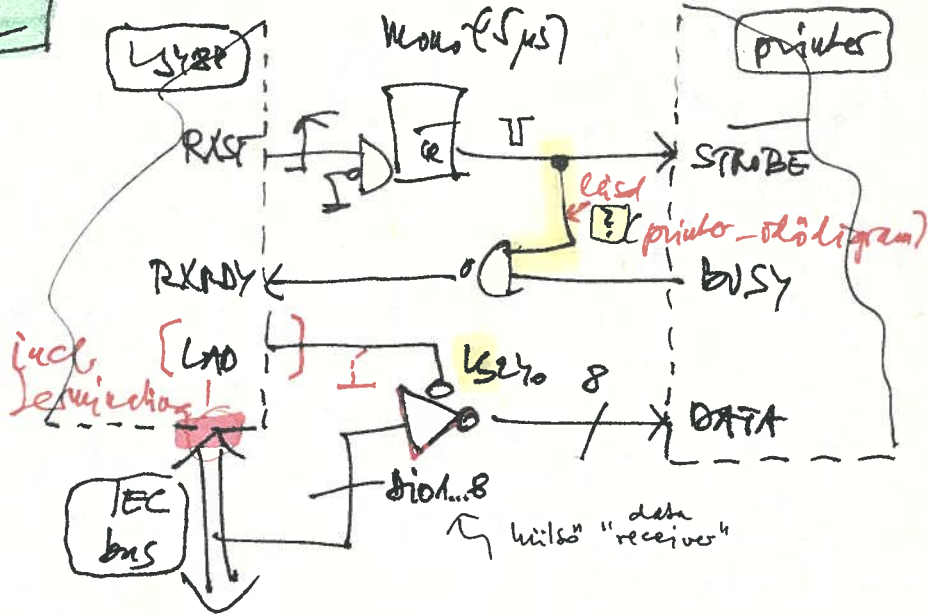 Mono (5 µs)
printer
RXST
Q
STROBE
lásd
?
(printer_idődiagram)
RXRDY
BUSY
incl.
[LAD]
LS240
8
DATA
IEC
bus
DIO1...8
külső "data receiver"